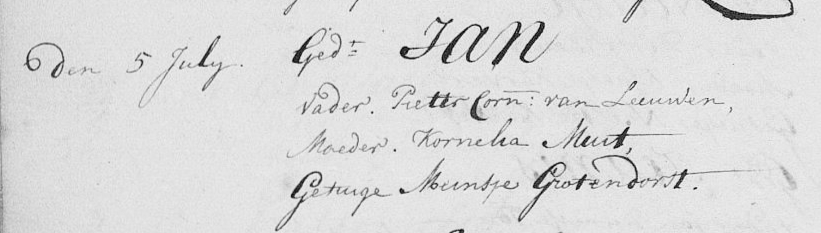 den 5 July. Gedt= JAN
Vader. Pietter Corn: van Leeuwen,
Moeder. Kornelia Muit,
Getuige Meinsje Grotendorst.